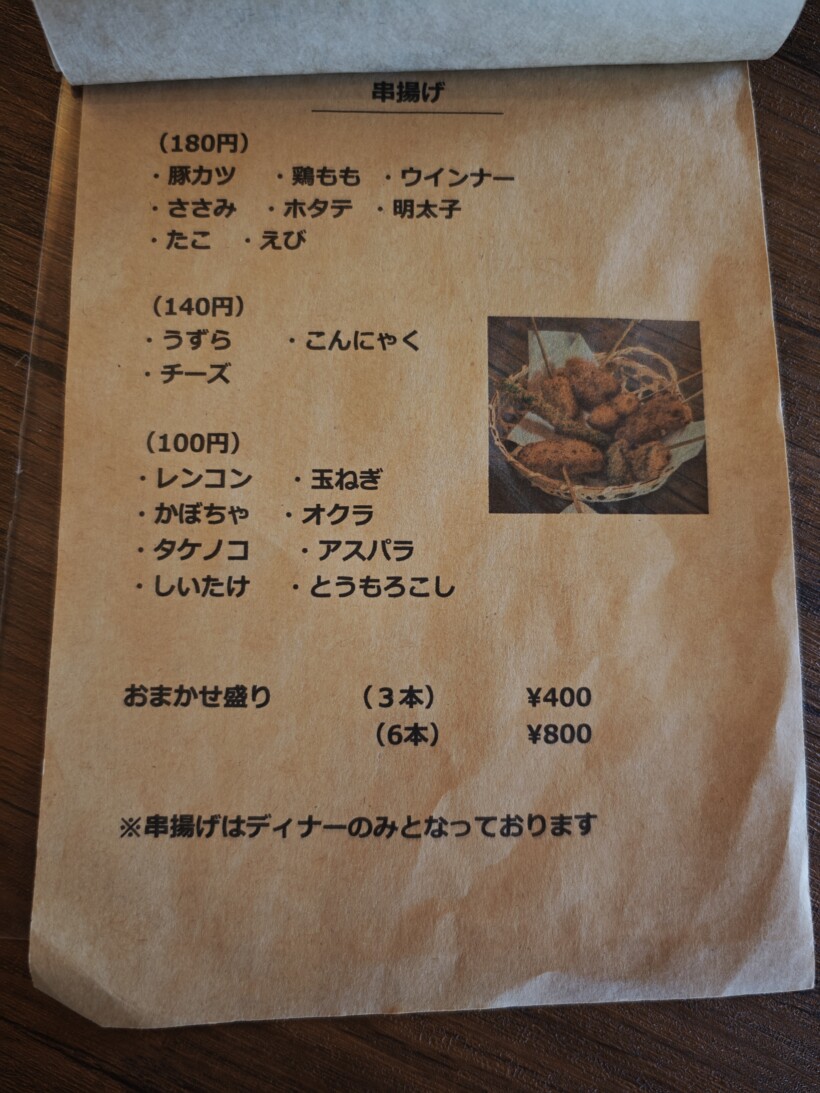 串揚げ
（180円）
・豚カツ ・鶏もも ・ウインナー
・ささみ ・ホタテ ・明太子
・たこ ・えび
（140円）
・うずら ・こんにゃく
・チーズ
（100円）
・レンコン ・玉ねぎ
・かぼちゃ ・オクラ
・タケノコ ・アスパラ
・しいたけ ・とうもろこし
おまかせ盛り （３本） ¥400
（6本） ¥800
※串揚げはディナーのみとなっております